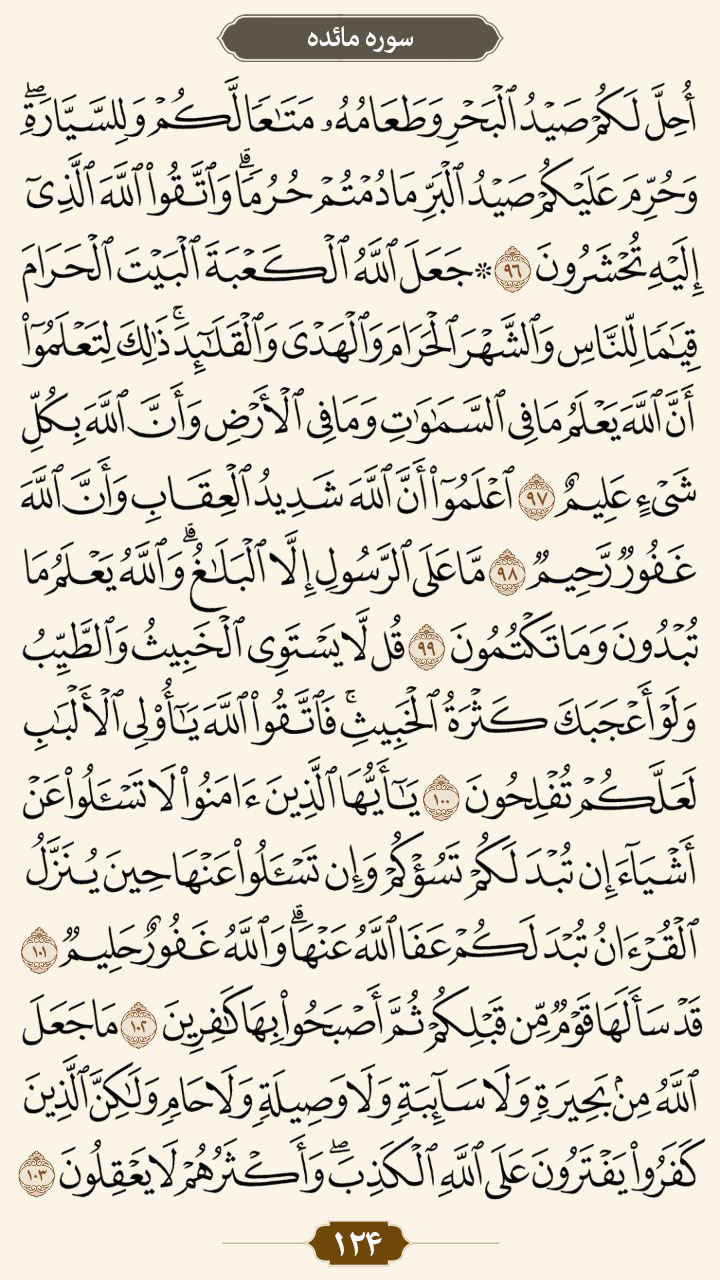 سوره مائده
أُحِلَّ لَكُمْ صَيْدُ ٱلْبَحْرِ وَطَعَامُهُۥ مَتَٰعًا لَّكُمْ وَلِلسَّيَّارَةِۖ
وَحُرِّمَ عَلَيْكُمْ صَيْدُ ٱلْبَرِّ مَا دُمْتُمْ حُرُمًاۗ وَٱتَّقُوا۟ ٱللَّهَ ٱلَّذِىٓ
إِلَيْهِ تُحْشَرُونَ ۹۶ * جَعَلَ ٱللَّهُ ٱلْكَعْبَةَ ٱلْبَيْتَ ٱلْحَرَامَ
قِيَٰمًا لِّلنَّاسِ وَٱلشَّهْرَ ٱلْحَرَامَ وَٱلْهَدْىَ وَٱلْقَلَٰٓئِدَۚ ذَٰلِكَ لِتَعْلَمُوٓا۟
أَنَّ ٱللَّهَ يَعْلَمُ مَا فِى ٱلسَّمَٰوَٰتِ وَمَا فِى ٱلْأَرْضِ وَأَنَّ ٱللَّهَ بِكُلِّ
شَىْءٍ عَلِيمٌ ۹۷ ٱعْلَمُوٓا۟ أَنَّ ٱللَّهَ شَدِيدُ ٱلْعِقَابِ وَأَنَّ ٱللَّهَ
غَفُورٌ رَّحِيمٌ ۹۸ مَّا عَلَى ٱلرَّسُولِ إِلَّا ٱلْبَلَٰغُۗ وَٱللَّهُ يَعْلَمُ مَا
تُبْدُونَ وَمَا تَكْتُمُونَ ۹۹ قُل لَّا يَسْتَوِى ٱلْخَبِيثُ وَٱلطَّيِّبُ
وَلَوْ أَعْجَبَكَ كَثْرَةُ ٱلْخَبِيثِۚ فَٱتَّقُوا۟ ٱللَّهَ يَٰٓأُو۟لِى ٱلْأَلْبَٰبِ
لَعَلَّكُمْ تُفْلِحُونَ ۱۰۰ يَٰٓأَيُّهَا ٱلَّذِينَ ءَامَنُوا۟ لَا تَسْـَٔلُوا۟ عَنْ
أَشْيَآءَ إِن تُبْدَ لَكُمْ تَسُؤْكُمْ وَإِن تَسْـَٔلُوا۟ عَنْهَا حِينَ يُنَزَّلُ
ٱلْقُرْءَانُ تُبْدَ لَكُمْ عَفَا ٱللَّهُ عَنْهَاۗ وَٱللَّهُ غَفُورٌ حَلِيمٌ ۱۰۱
قَدْ سَأَلَهَا قَوْمٌ مِّن قَبْلِكُمْ ثُمَّ أَصْبَحُوا۟ بِهَا كَٰفِرِينَ ۱۰۲ مَا جَعَلَ
ٱللَّهُ مِنۢ بَحِيرَةٍ وَلَا سَآئِبَةٍ وَلَا وَصِيلَةٍ وَلَا حَامٍ وَلَٰكِنَّ ٱلَّذِينَ
كَفَرُوا۟ يَفْتَرُونَ عَلَى ٱللَّهِ ٱلْكَذِبَۖ وَأَكْثَرُهُمْ لَا يَعْقِلُونَ ۱۰۳
۱۲۴